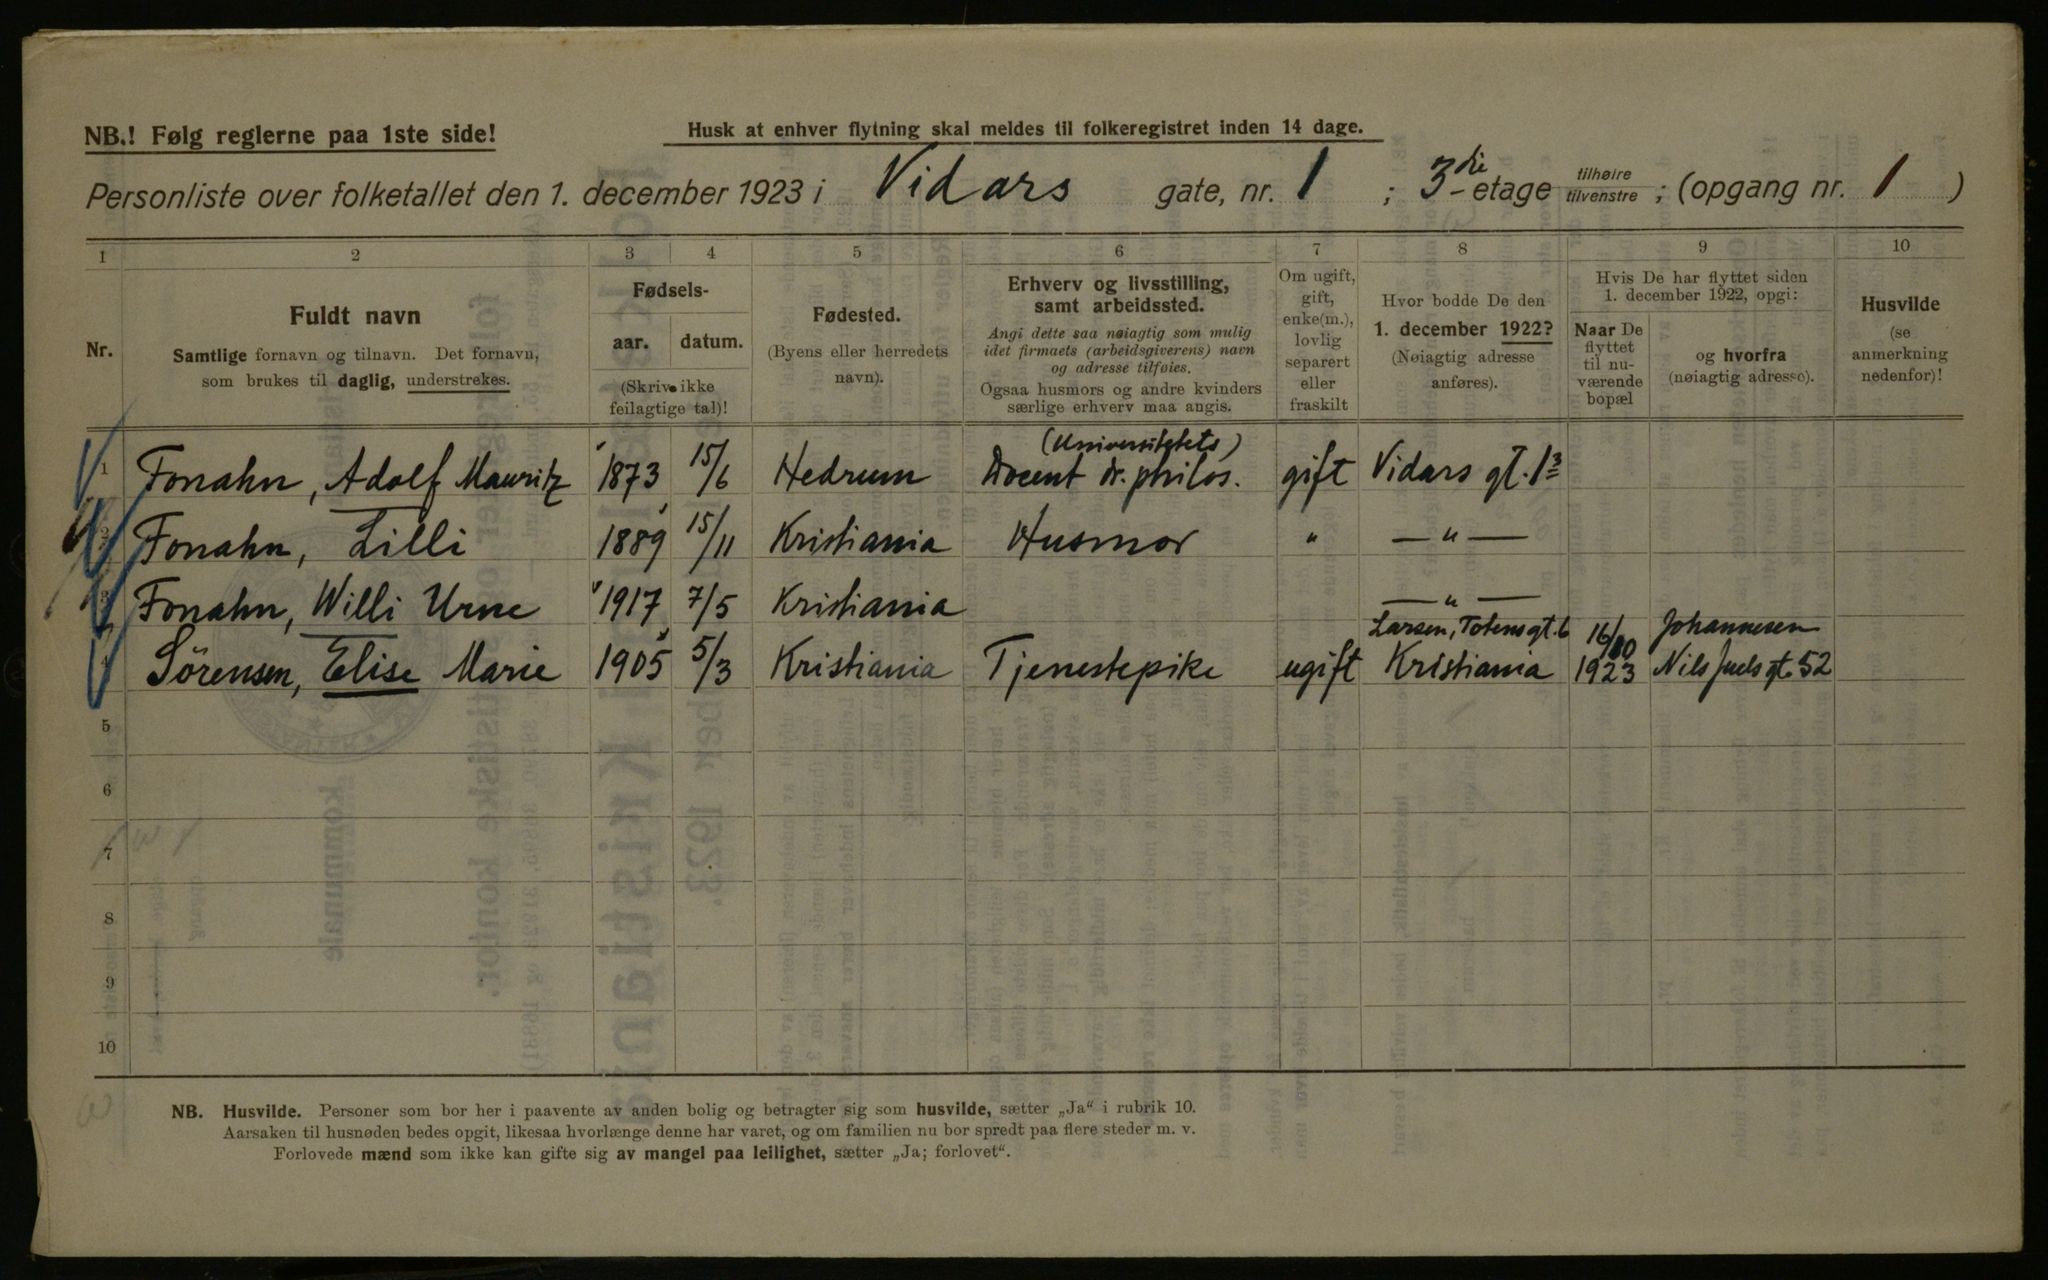 NB.! Følg reglerne paa 1ste side!
Husk at enhver flytning skal meldes til folkeregistret inden 14 dage.
Personliste over folketallet den 1. december 1923 i Vidars gate, nr. 1 ; 3die etage tilhøire tilvenstre ; (opgang nr. 1 )
1 2 3 4 5 6 7 8 9 10
Nr.
Fuldt navn
Samtlige fornavn og tilnavn. Det fornavn,
som brukes til daglig, understrekes.
Fødsels-
aar. datum.
(Skriv ikke
feilagtige tal)!
Fødested.
(Byens eller herredets
navn).
Erhverv og livsstilling,
samt arbeidssted.
Angi dette saa nøiagtig som mulig
idet firmaets (arbeidsgiverens) navn
og adresse tilføies.
Ogsaa husmors og andre kvinders
særlige erhverv maa angis.
Om ugift,
gift,
enke(m.),
lovlig
separert
eller
fraskilt
Hvor bodde De den
1. december 1922?
(Nøiagtig adresse
anføres).
Hvis De har flyttet siden
1. december 1922, opgi:
Naar De
flyttet
til nu-
værende
bopæl
og hvorfra
(nøiagtig adresse).
Husvilde
(se
anmerkning
nedenfor)!
(Universitetets)
1 Fonahn, Adolf Mauritz 1873 15/6 Hedrum Docent dr. philos. gift Vidars gt. 1³
2 Fonahn, Lilli 1889 15/11 Kristiania Husmor " — " —
3 Fonahn, Willi Urne 1917 7/5 Kristiania — " —
Larsen, Totensgt. 6 16/10 Johannesen
4 Sörensen, Elise Marie 1905 5/3 Kristiania Tjenestepike ugift Kristiania 1923 Nils Juels gt. 52
5
6
7
8
9
10
NB. Husvilde. Personer som bor her i paavente av anden bolig og betragter sig som husvilde, sætter „Ja“ i rubrik 10.
Aarsaken til husnøden bedes opgit, likesaa hvorlænge denne har varet, og om familien nu bor spredt paa flere steder m. v.
Forlovede mænd som ikke kan gifte sig av mangel paa leilighet, sætter „Ja; forlovet“.